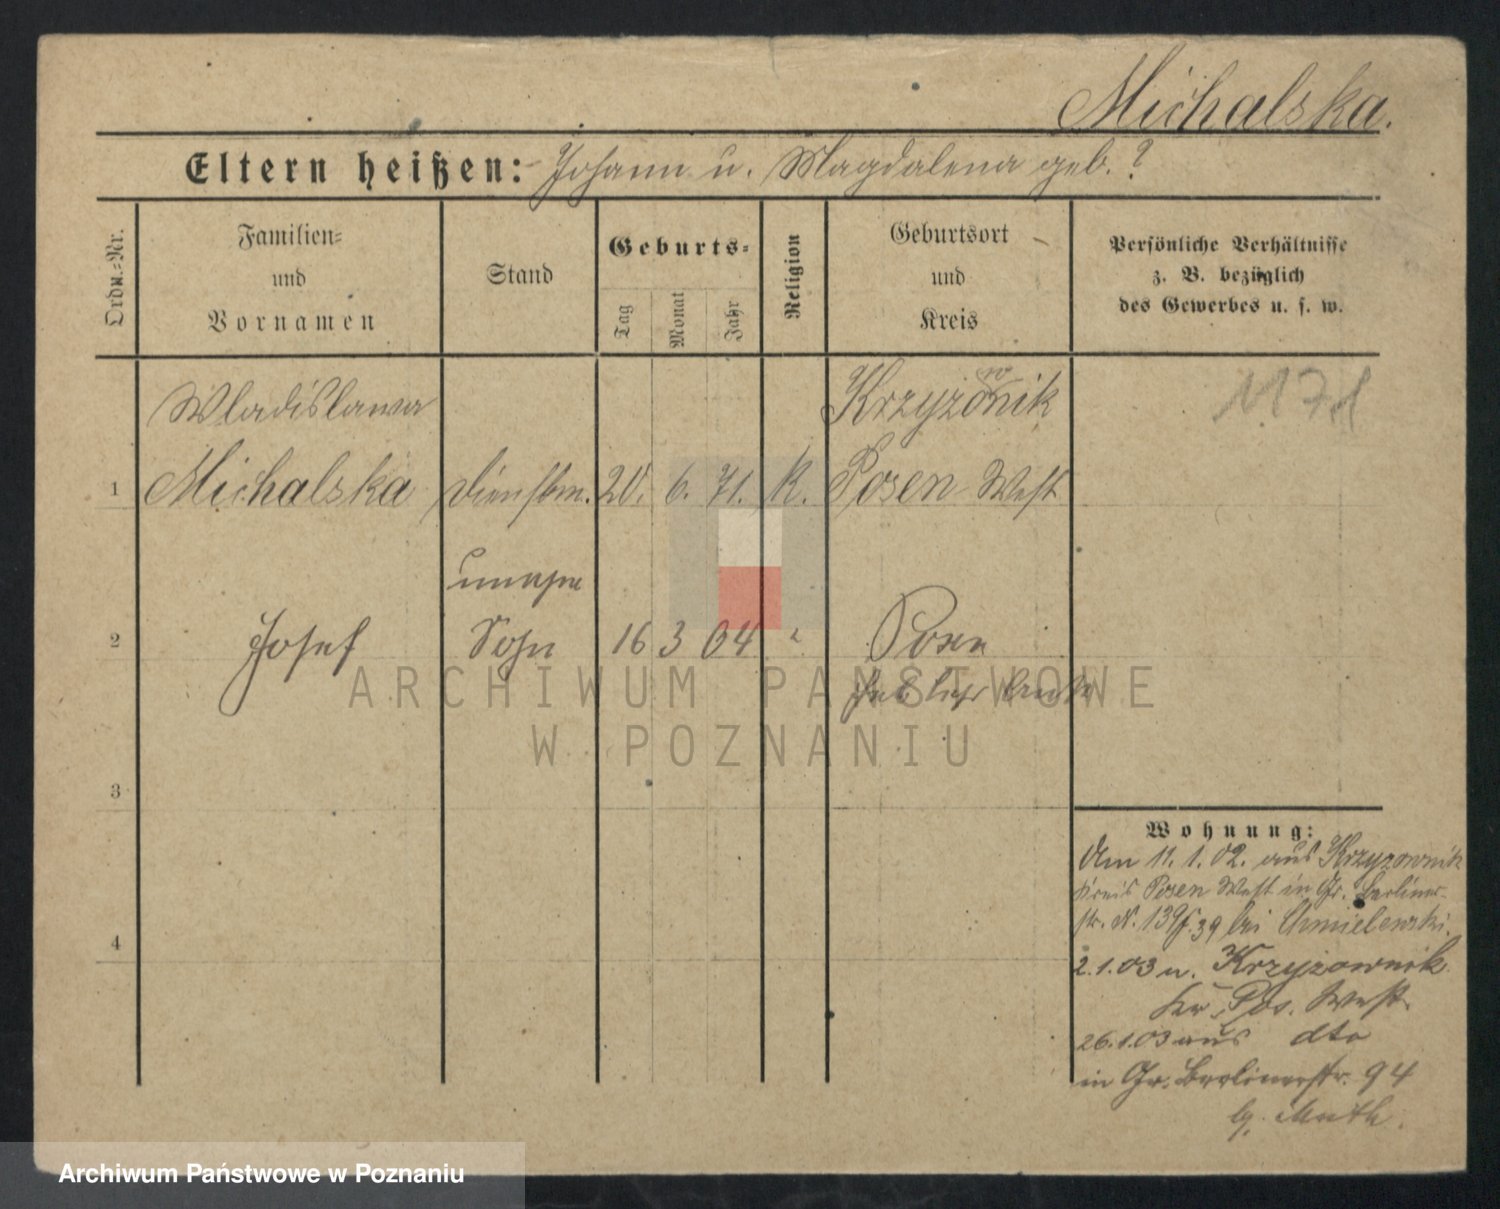 Michalska.
Eltern heißen: Johann u. Magdalena geb. ?
Ordn.-Nr.
Familien-
und
Vornamen
Stand
Geburts-
Tag
Monat
Jahr
Religion
Geburtsort
und
Kreis
Persönliche Verhältnisse
z. B. bezüglich
des Gewerbes u. s. w.
Wladislawa
Krzyżownik
1 Michalska Dienstm. 20. 6. 71. K. Posen West
unehe
2 Josef Sohn 16 3 04 " Posen
Heb lehr
3
4
Wohnung:
Am 11. 1. 02. aus Krzyzownik
Kreis Posen West in Gr. Berliner-
str. N. 139 39 bei Chmielewski.
2.1.03 n. Krzyżownik
Kr. Pos. West
26.1.03 aus dto
in Gr. Berlinerstr. 94
b. Muth.
ARCHIWUM PAŃSTWOWE
W POZNANIU
Archiwum Państwowe w Poznaniu